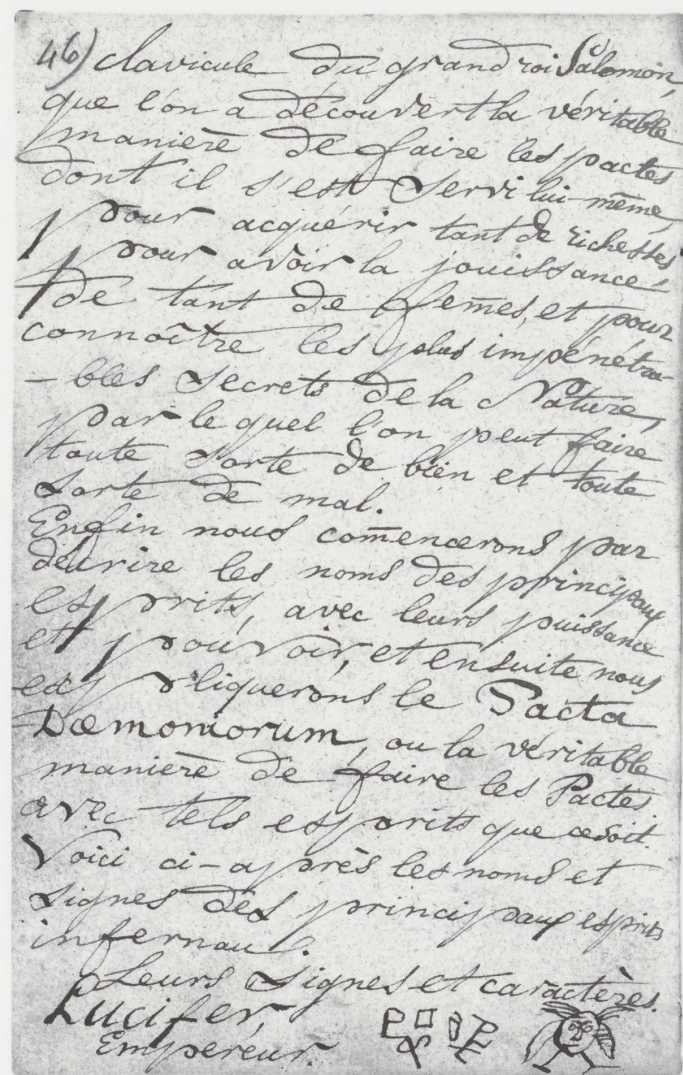 46) clavicule du grand roi Salomon,
que l'on a découvert la véritable
manière de faire les pactes
dont il s'est servi lui-même,
pour acquérir tant de richesses
pour avoir la jouissance
de tant de fem̄es, et pour
connoître les plus impénétra-
-bles secrets de la Nature,
par le quel l'on peut faire
toute sorte de bien et toute
sorte de mal.
Enfin nous com̄encerons par
décrire les noms des principaux
esprits, avec leurs puissance
et pouvoir, et ensuite nous
expliquerons le Pacta
Dæmoniorum, ou la véritable
manière de faire les Pactes
avec tels esprits que ce soit.
Voici ci-après les noms et
signes des principaux esprits
infernaux.
Leurs signes et caractères.
Lucifer,
Empereur.